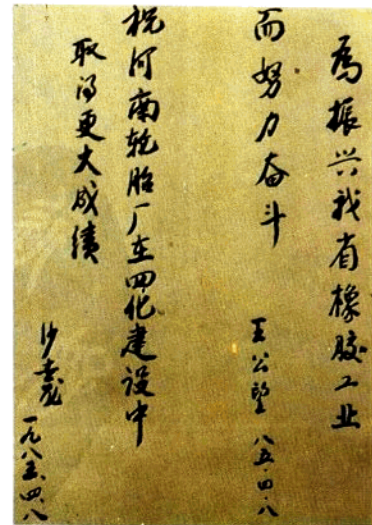 為振兴我省橡胶工业
而努力奋斗
王公望 八五·四·八
祝河南轮胎厂在四化建设中
取得更大成绩
一九八五、四、八